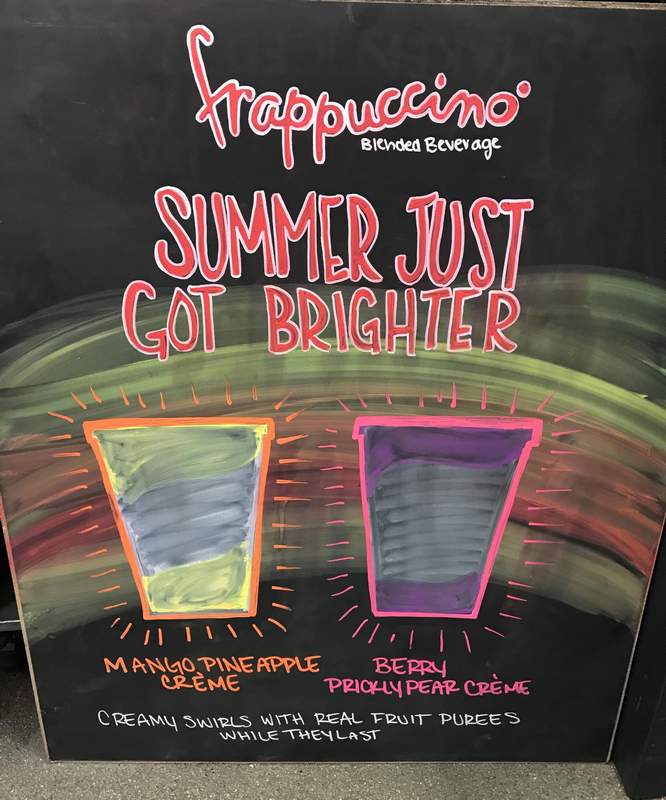 frappuccino
Blended Beverage
SUMMER JUST
GOT BRIGHTER
MANGO PINEAPPLE
CRÈME
BERRY
PRICKLY PEAR CRÈME
CREAMY SWIRLS WITH REAL FRUIT PUREES
WHILE THEY LAST